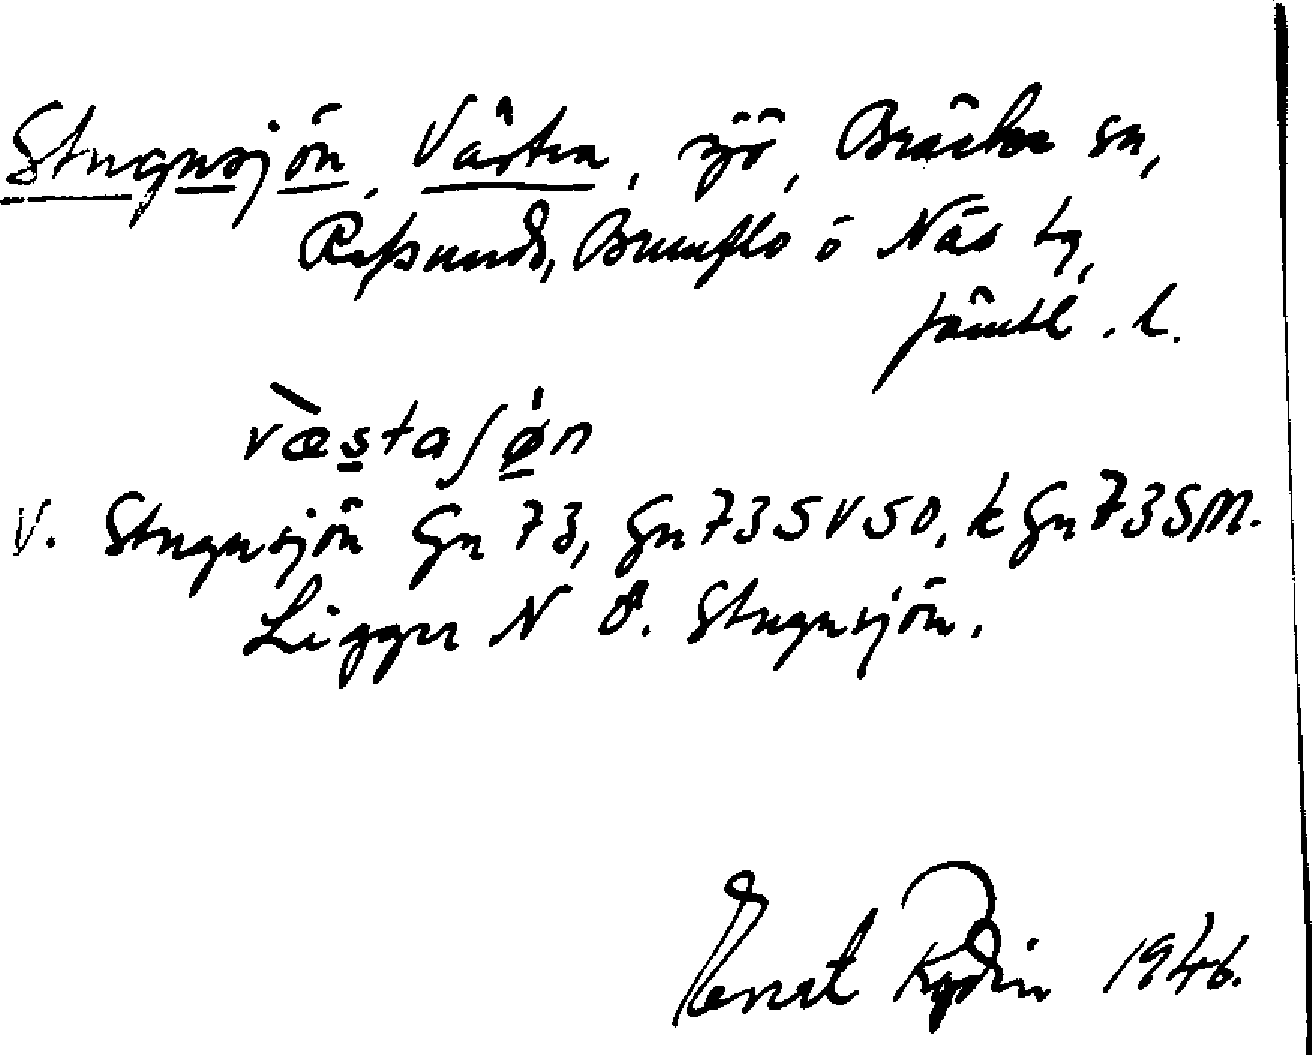 Stugusjön, Västra, sjö, Bräcke sn,
Refsunds, Brunflo o Näs tg,
Jämtl. l.
væstaʃøn
V. Stugusjön Gn 73, Gn 73 SV SO, k Gn 73 SM.
Ligger N Ö. Stugusjön.
Rydin 1946.